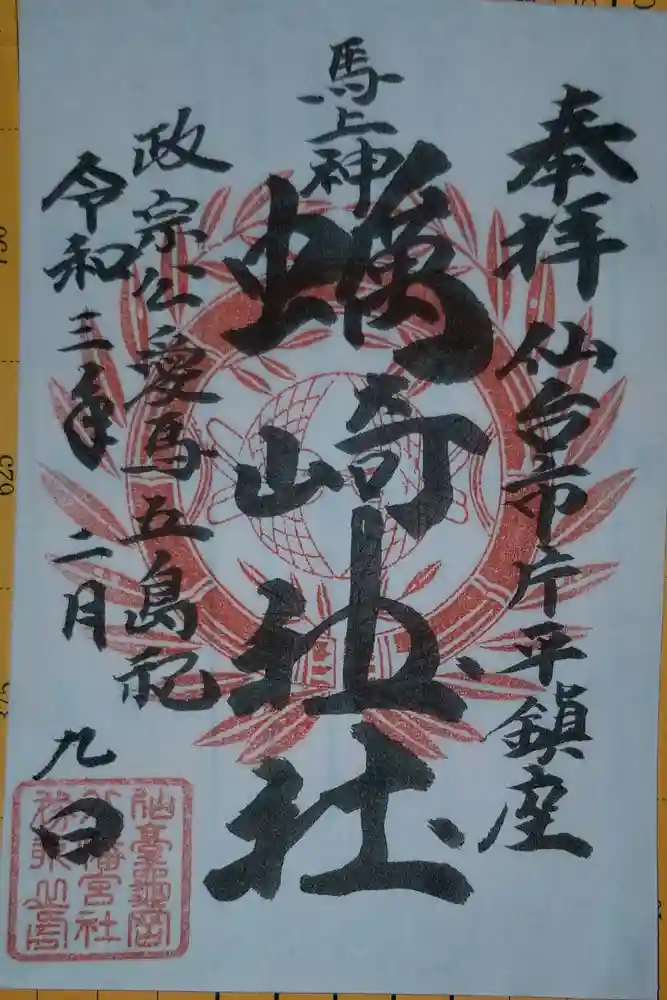 奉拝 仙台市片平鎮座
馬上神
蠣崎神社
政宗公愛馬五島祀
令和三年二月九日
仙臺龜岡
八幡宮社
務所之印